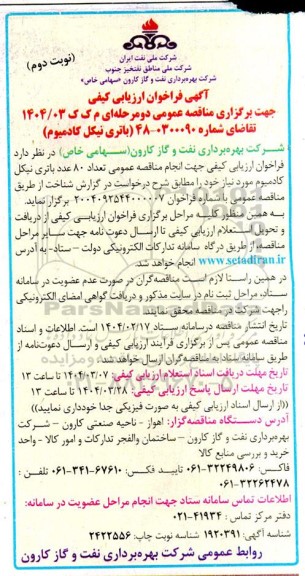 (نوبت دوم)
شرکت ملی نفت ایران
شرکت ملی مناطق نفتخیز جنوب
شرکت بهره‌برداری نفت و گاز کارون «سهامی خاص»
آگهی فراخوان ارزیابی کیفی
جهت برگزاری مناقصه عمومی دومرحله‌ای م ک ک ۱۴۰۴/۰۳
تقاضای شماره ۰۳۰۰۰۹۰-۴۸ (باتری نیکل کادمیوم)
شرکت بهره‌برداری نفت و گاز کارون(سهامی خاص) در نظر دارد
فراخوان ارزیابی کیفی جهت انجام مناقصه عمومی تعداد ۸۰ عدد باتری نیکل
کادمیوم مورد نیاز خود را مطابق شرح درخواست در گزارش شناخت از طریق
مناقصه عمومی با شماره فراخوان ۲۰۰۴۰۹۲۵۴۴۰۰۰۰۰۷ برگزار نماید.
به همین منظور کلیه مراحل برگزاری فراخوان ارزیابی کیفی از دریافت
و تحویل استعلام ارزیابی کیفی تا ارسال دعوت نامه جهت سایر مراحل
مناقصه، از طریق درگاه سامانه تدارکات الکترونیکی دولت – ستاد- به آدرس
www.setadiran.ir انجام خواهد شد.
در همین راستا لازم است مناقصه‌گران در صورت عدم عضویت در سامانه
ستاد، مراحل ثبت نام در سایت مذکور و دریافت گواهی امضای الکترونیکی
راجهت شرکت در مناقصه محقق نمایند.
تاریخ انتشار مناقصه درسامانه ستاد ۱۴۰۴/۰۲/۱۷ است. اطلاعات و اسناد
مناقصه عمومی پس از برگزاری فرآیند ارزیابی کیفی و ارسال دعوت‌نامه از
طریق سامانه ستاد به مناقصه‌گران ارسال خواهد شد.
تاریخ مهلت دریافت اسناد استعلام ارزیابی کیفی: ۱۴۰۴/۰۳/۰۷ تا ساعت ۱۳
تاریخ مهلت ارسال پاسخ ارزیابی کیفی: ۱۴۰۴/۰۳/۲۸ تا ساعت ۱۳
((از ارسال اسناد ارزیابی کیفی به صورت فیزیکی جدا خودداری نمایید))
آدرس دستگاه مناقصه‌گزار: اهواز - ناحیه صنعتی کارون – شرکت
بهره‌برداری نفت و گاز کارون – ساختمان والفجر تدارکات و امور کالا - واحد
خرید و بررسی منابع کالا
فاکس: ۳۲۲۴۹۸۰۶-۰۶۱ تایید فکس: ۶۷۶۱۰-۳۴۱-۰۶۱ تلفن:
۰۶۱-۳۲۲۶۲۴۷۸
اطلاعات تماس سامانه ستاد جهت انجام مراحل عضویت در سامانه:
دفتر مرکز تماس : ۴۱۹۳۴-۰۲۱
شناسه آگهی: ۱۹۲۰۳۹۱ شناسه نوبت چاپ: ۲۴۲۲۵۵۶
روابط عمومی شرکت بهره‌برداری نفت و گاز کارون